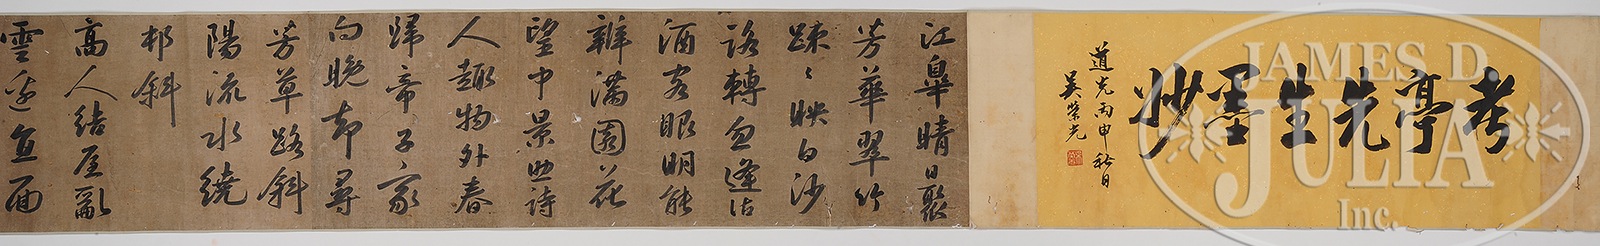 考亭先生墨妙
道光丙申秋日
吳榮光
江皐晴日聚
芳華翠竹
踈〻映白沙
路轉忽逢沽
酒客眼明能
辦滿園花
望中景助詩
人趣物外春
歸帝子家
向晚却尋
芳草路斜
陽流水繞
邨斜
高人結屋亂
雲邊直面
JAMES D.
JULIA
Inc.